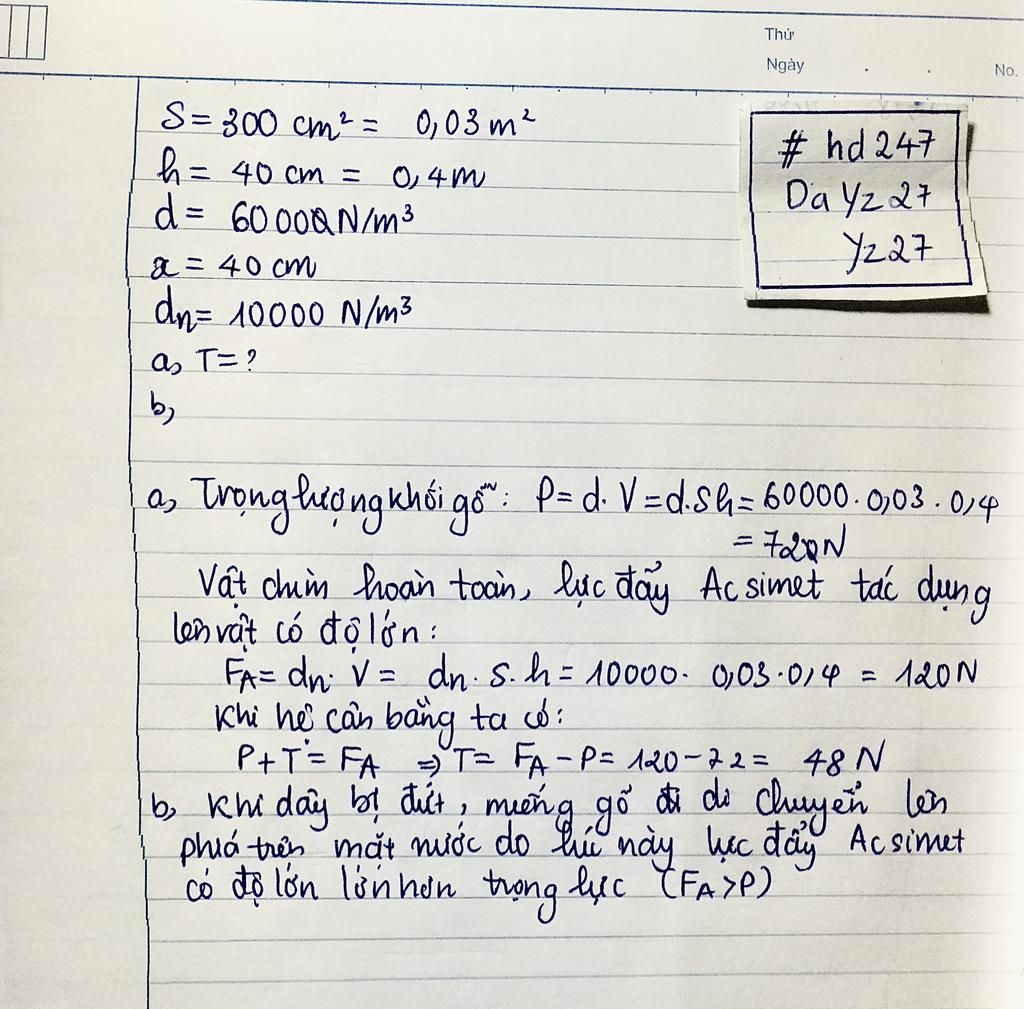 Thứ
Ngày . . No.
# hd247
Da Yz27
Yz27
S = 300 cm² = 0,03 m²
h = 40 cm = 0,4m
d = 60000 N/m³
x = 40 cm
dn = 10000 N/m³
a, T = ?
b,
a, Trọng lượng khối gỗ: P = d. V = d.Sh = 60000. 0,03. 0,4
= 720N
Vật chìm hoàn toàn, lực đẩy Acsimet tác dụng
lên vật có độ lớn:
FA = dn. V = dn. S. h = 10000. 0,03. 0,4 = 120N
Khi hệ cân bằng ta có:
P + T = FA ⇒ T = FA - P = 120 - 72 = 48 N
b, Khi dây bị đứt, miếng gỗ di chuyển lên
phía trên mặt nước do lúc này lực đẩy Acsimet
có độ lớn lớn hơn trọng lực (FA > P)